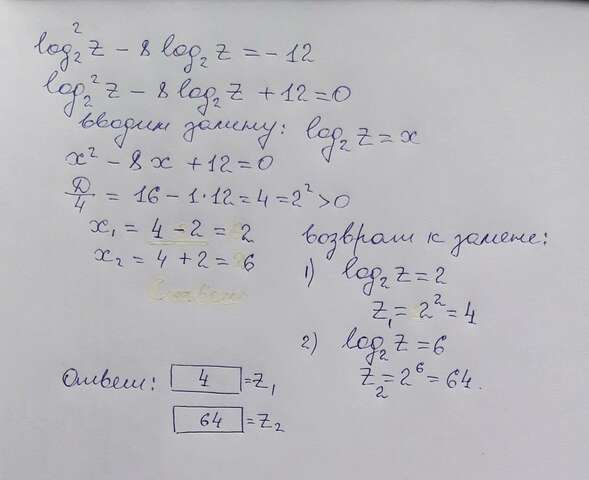 log₂² z − 8 log₂ z = − 12
log₂² z − 8 log₂ z + 12 = 0
вводим замену: log₂ z = x
x² − 8x + 12 = 0
Д/4 = 16 − 1·12 = 4 = 2² > 0
x₁ = 4 − 2 = 2
x₂ = 4 + 2 = 6
возврат к замене:
1) log₂ z = 2
z₁ = 2² = 4
2) log₂ z = 6
z₂ = 2⁶ = 64.
Ответ: 4 = z₁
64 = z₂